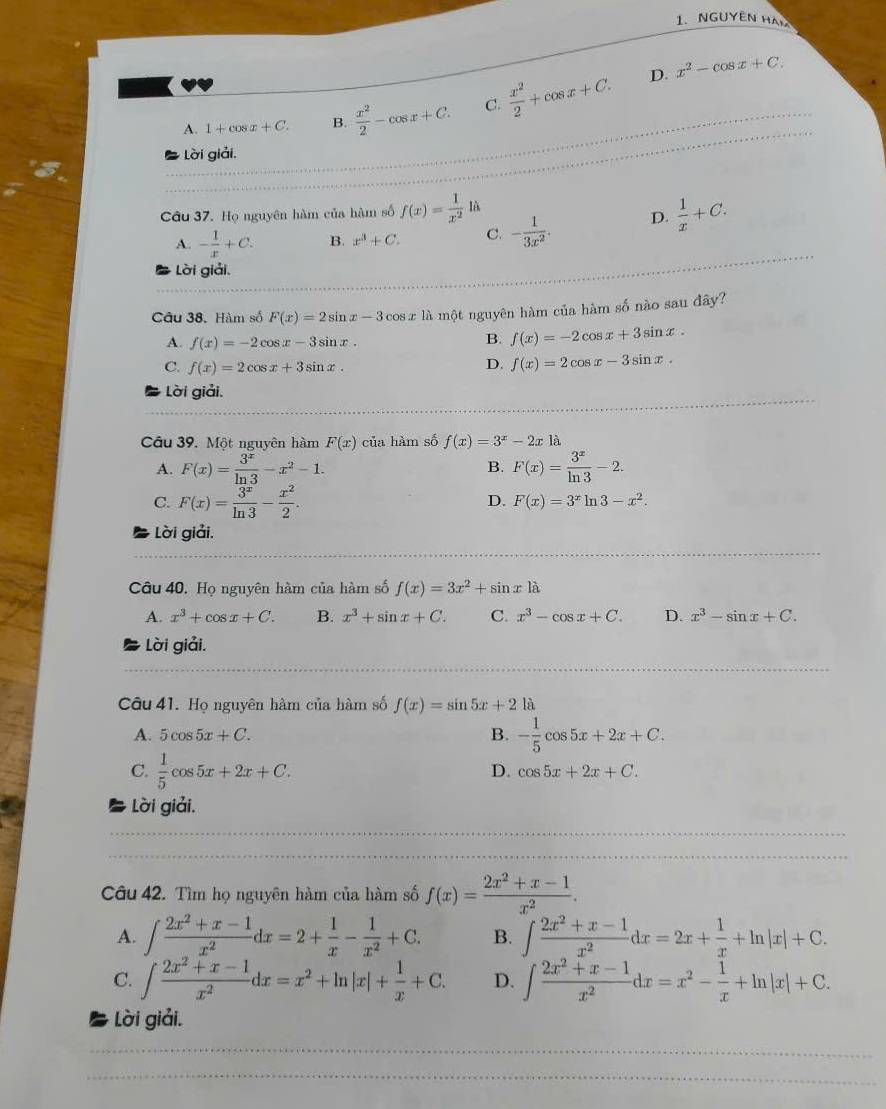 1. NGUYÊN HÀM
A. 1 + cos x + C. B. x²/2 − cos x + C. C. x²/2 + cos x + C. D. x² − cos x + C.
Lời giải.
Câu 37. Họ nguyên hàm của hàm số f(x) = 1/x² là
A. −1/x + C. B. x³ + C. C. −1/3x². D. 1/x + C.
Lời giải.
Câu 38. Hàm số F(x) = 2 sin x − 3 cos x là một nguyên hàm của hàm số nào sau đây?
A. f(x) = −2 cos x − 3 sin x . B. f(x) = −2 cos x + 3 sin x .
C. f(x) = 2 cos x + 3 sin x . D. f(x) = 2 cos x − 3 sin x .
Lời giải.
Câu 39. Một nguyên hàm F(x) của hàm số f(x) = 3ˣ − 2x là
A. F(x) = 3ˣ/ln 3 − x² − 1. B. F(x) = 3ˣ/ln 3 − 2.
C. F(x) = 3ˣ/ln 3 − x²/2. D. F(x) = 3ˣ ln 3 − x².
Lời giải.
Câu 40. Họ nguyên hàm của hàm số f(x) = 3x² + sin x là
A. x³ + cos x + C. B. x³ + sin x + C. C. x³ − cos x + C. D. x³ − sin x + C.
Lời giải.
Câu 41. Họ nguyên hàm của hàm số f(x) = sin 5x + 2 là
A. 5 cos 5x + C. B. −1/5 cos 5x + 2x + C.
C. 1/5 cos 5x + 2x + C. D. cos 5x + 2x + C.
Lời giải.
Câu 42. Tìm họ nguyên hàm của hàm số f(x) = (2x² + x − 1)/x².
A. ∫ (2x² + x − 1)/x² dx = 2 + 1/x − 1/x² + C. B. ∫ (2x² + x − 1)/x² dx = 2x + 1/x + ln |x| + C.
C. ∫ (2x² + x − 1)/x² dx = x² + ln |x| + 1/x + C. D. ∫ (2x² + x − 1)/x² dx = x² − 1/x + ln |x| + C.
Lời giải.